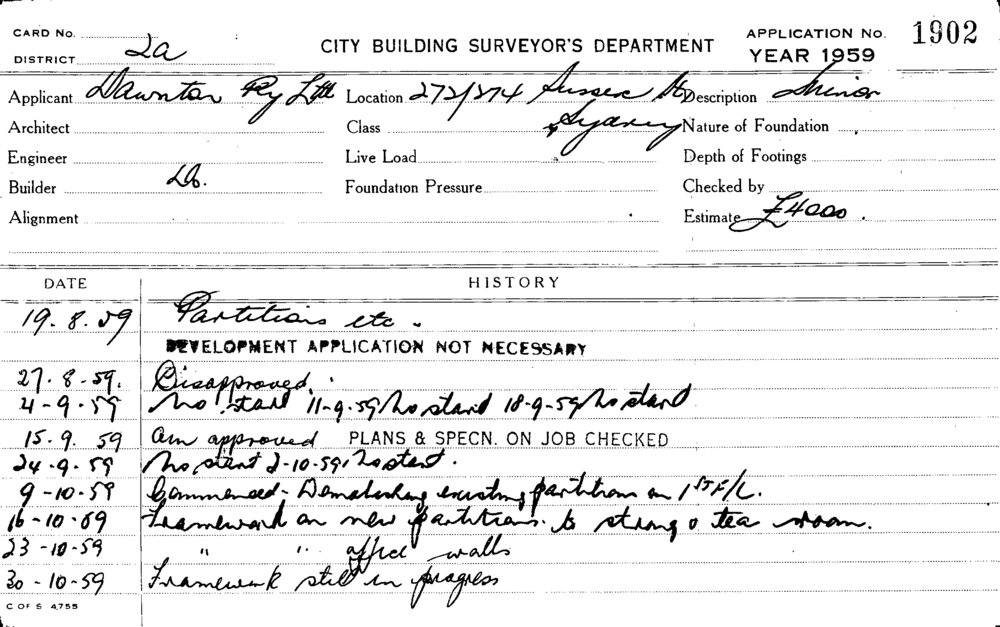 CARD No.
DISTRICT 2a
CITY BUILDING SURVEYOR'S DEPARTMENT
APPLICATION No. 1902
YEAR 1959
Applicant Dawnton Pty Ltd Location 272/274 Sussex St Description Minor
Architect Class Sydney Nature of Foundation
Engineer Live Load Depth of Footings
Builder Do. Foundation Pressure Checked by
Alignment Estimate £4000.
DATE HISTORY
19.8.59 Partitions etc.
DEVELOPMENT APPLICATION NOT NECESSARY
27.8-59. Disapproved.
4-9-59 No start 11-9-59 No start 18-9-59 No start
15.9.59 am approved PLANS & SPECN. ON JOB CHECKED
24-9-59 No start 2-10-59 No start.
9-10-59 Commenced - Demolishing existing partition on 1st F/L.
16-10-59 Framework on new partitions to strong & tea room.
23-10-59 " " office walls
30-10-59 Framework still in progress
C OF S 4755